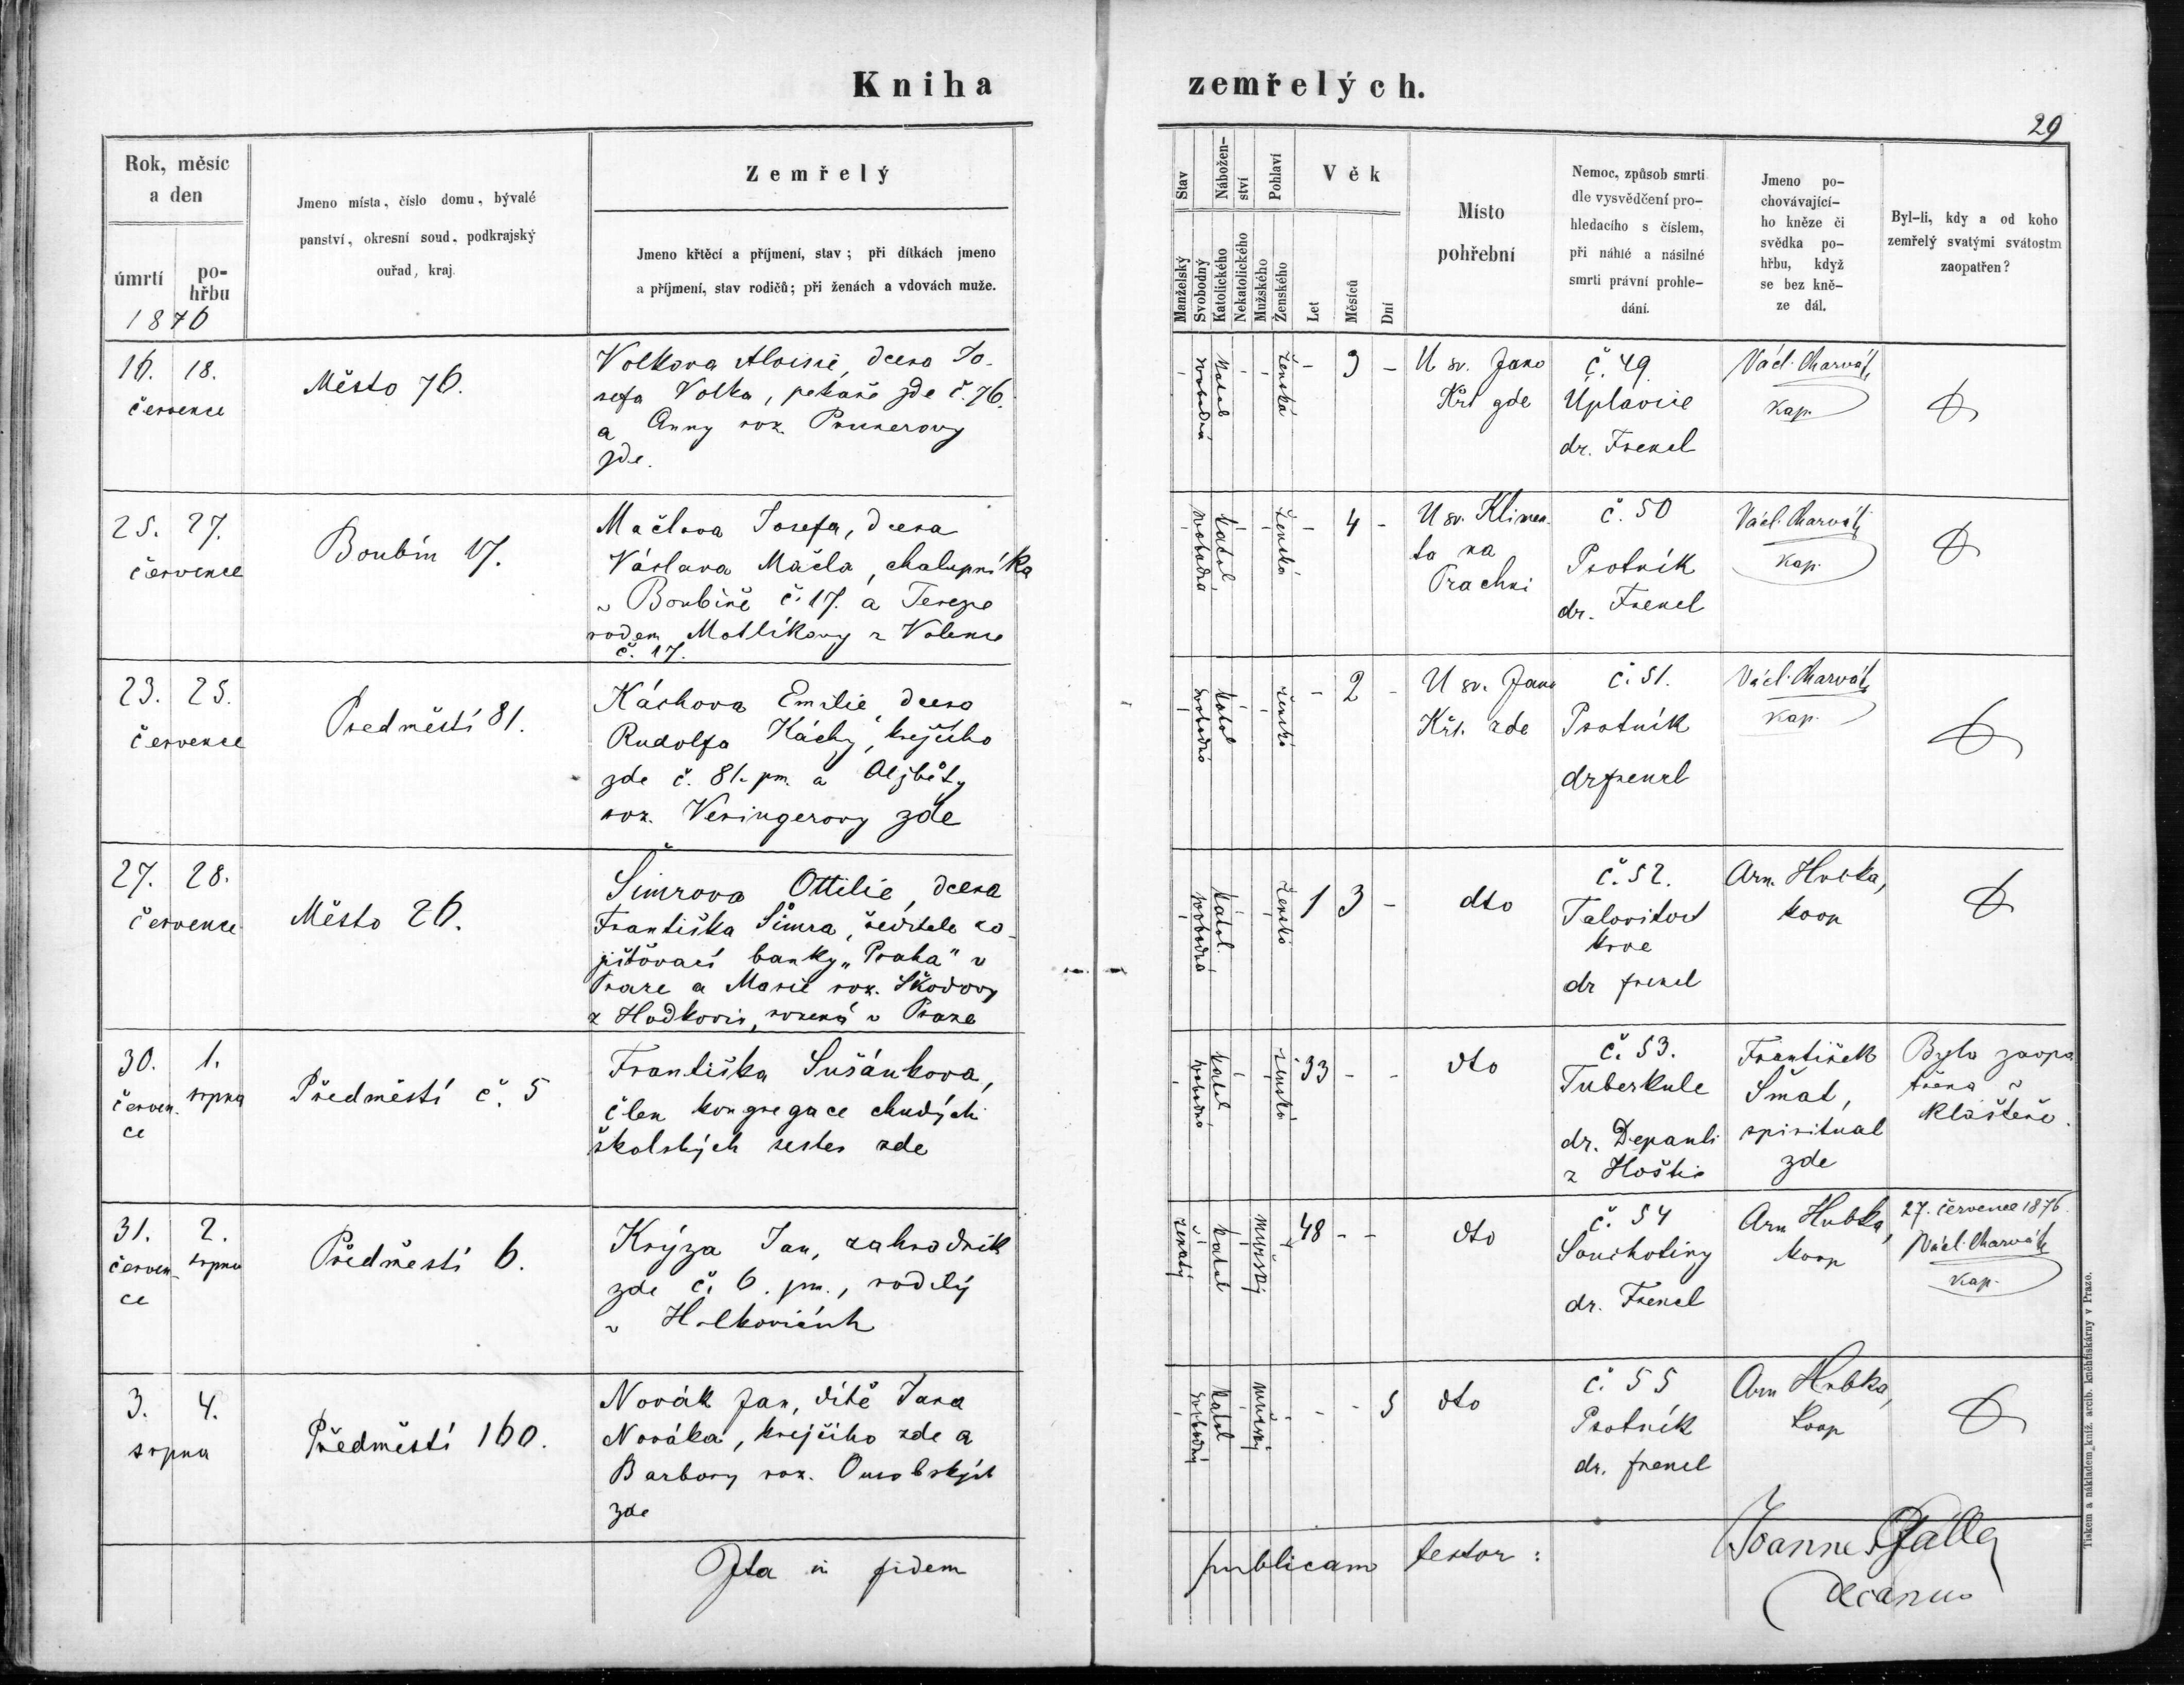 Kniha zemřelých.
29
Rok, měsíc
a den
úmrtí
po-
hřbu
1876
Jmeno místa, číslo domu, bývalé
panství, okresní soud, podkrajský
ouřad, kraj.
Zemřelý
Jmeno křtěcí a příjmení, stav; při dítkách jmeno
a příjmení, stav rodičů; při ženách a vdovách muže.
Stav
Manželský
Svobodný
Nábožen-
ství
Katolického
Nekatolického
Pohlaví
Mužského
Ženského
Věk
Let
Měsíců
Dní
Místo
pohřební
Nemoc, způsob smrti
dle vysvědčení pro-
hledacího s číslem,
při náhlé a násilné
smrti právní prohle-
dání.
Jmeno po-
chovávající-
ho kněze či
svědka po-
hřbu, když
se bez kně-
ze dál.
Byl-li, kdy a od koho
zemřelý svatými svátostm
zaopatřen?
16. 18.
července
Město 76.
Volkova Aloisie, dcera Jo-
sefa Volka, pekaře zde č. 76.
a Anny roz.
zde.
svobodná
katol
ženská
- 3 -
U sv. Jana
Křt zde
č. 49
Úplavice
dr. Frenel
Václ. Charvát,
kap.
25. 27.
července
Boubín 17.
Mačlova Josefa, dcera
Václava Mačla, chalupníka
v Boubíně č. 17. a Terezie
rodem Matlíkovy z Volenic
č. 17.
svobodná
katol.
ženská
- 4 -
U sv. Klimen-
ta na
Prachni
č. 50
Psotník
dr. Frenel
Václ. Charvát,
kap.
23. 25.
července
Předměstí 81.
Káchova Emilie, dcera
Rudolfa Káchy, krejčího
zde č. 81. pm. a Alžběty
roz. Vesingerovy zde
svobodná
katol
ženská
- 2 -
U sv. Jana
Křt. zde
č. 51.
Psotník
dr frenel
Václ. Charvát,
kap.
27. 28.
července
Město 26.
Šimrova Ottilie, dcera
Františka Šimra, ředitele po-
jišťovací banky „Praha" v
Praze a Marie roz. Škodovy
z Hodkovic, rozená v Praze
svobodná
katol.
ženská
1 3 -
dto
č. 52.
krve
dr frenel
Arn. Hubka,
koop
30. 1.
červen- srpna
ce
Předměstí č. 5
Františka Sušánkova,
člen kongregace chudých
školských sester zde
svobodná
katol
ženská
33 - -
dto
č. 53.
Tuberkule
dr. Depauli
z Hoštic
František
Šmat,
spiritual
zde
Byla zaopa
třena v
klášteře.
31. 2.
červen- srpna
ce
Předměstí 6.
Krýza Jan, zahradník
zde č. 6. pm., rodilý
v
ženatý
katol
mužský
48 - -
dto
č. 54
Souchotiny
dr. Frenel
Arn Hubka,
koop
27. července 1876.
Václ. Charvát,
kap.
3. 4.
srpna
Předměstí 160.
Novák Jan, dítě Jana
Nováka, krejčího zde a
Barbory roz.
zde
svobodný
katol
mužský
- - 5
dto
č. 55
Psotník
dr. frenel
Arn Hubka,
koop
Ita in fidem publicam testor:
decanus
Tiskem a nákladem kníž. arcib. kněhtiskárny v Praze.